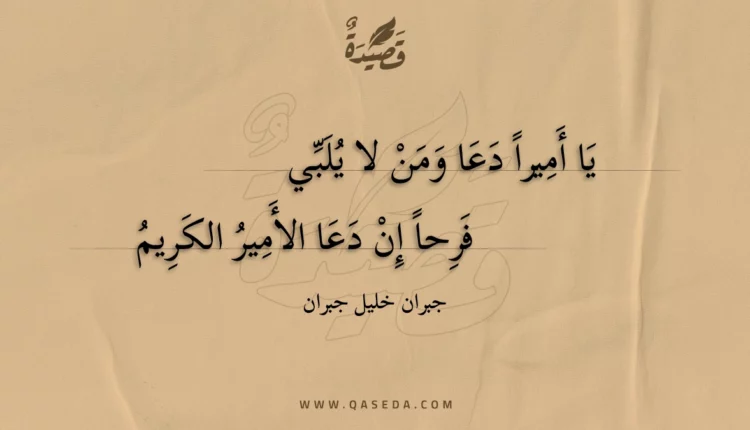 قَصِيدَةٌ
يَا أَمِيراً دَعَا وَمَنْ لا يُلَبِّي
فَرِحاً إِنْ دَعَا الأَمِيرُ الكَرِيمُ
جبران خليل جبران
WWW.QASEDA.COM